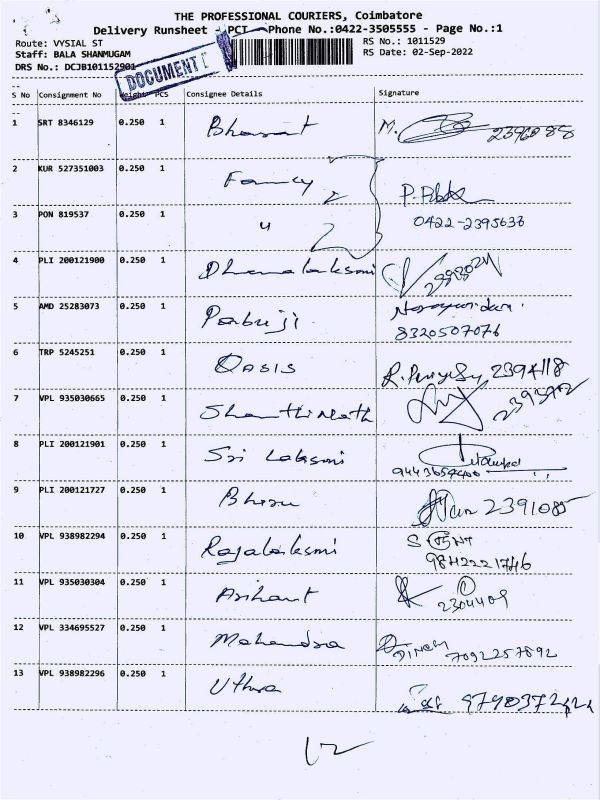 THE PROFESSIONAL COURIERS, Coimbatore
Delivery Runsheet - PCT - Phone No.:0422-3505555 - Page No.:1
Route: VYSIAL ST
Staff: BALA SHANMUGAM
DRS No.: DCJB101152901
RS No.: 1011529
RS Date: 02-Sep-2022
DOCUMENT
S No Consignment No Weight PCS Consignee Details Signature
1 SRT 8346129 0.250 1 Bharat M. 2396088
2 KUR 527351003 0.250 1 Family
3 PON 819537 0.250 1 " 0422-2395638
4 PLI 200121900 0.250 1 Dhanalaksmi
5 AMD 25283073 0.250 1 Parbuji
8320507076
6 TRP 5245251 0.250 1 OASIS 2394118
7 VPL 935030665 0.250 1 Shanthinath
8 PLI 200121901 0.250 1 Sri Laksmi
9 PLI 200121727 0.250 1 Bheru 2391085
10 VPL 938982294 0.250 1 Rajalaksmi
9842221746
11 VPL 935030304 0.250 1 Arihant 2304409
12 VPL 334695527 0.250 1 Mahendra 7092257892
13 VPL 938982296 0.250 1 Uthra
12